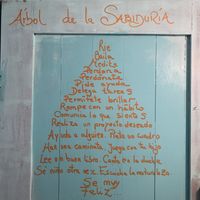 Árbol de la SABIDURÍA
Ríe
Baila
Medita
Perdona
Perdónate
Pide ayuda
Delega tareas
Permítete brillar
Rompe con un hábito
Comunica lo que sientes
Realiza un proyecto deseado
Ayuda a alguien. Pinta un cuadro
Haz una caminata. Juega con tu hijo
Lee un buen libro. Canta en la ducha
Se niño otra vez. Escucha la naturaleza
Se muy
Feliz